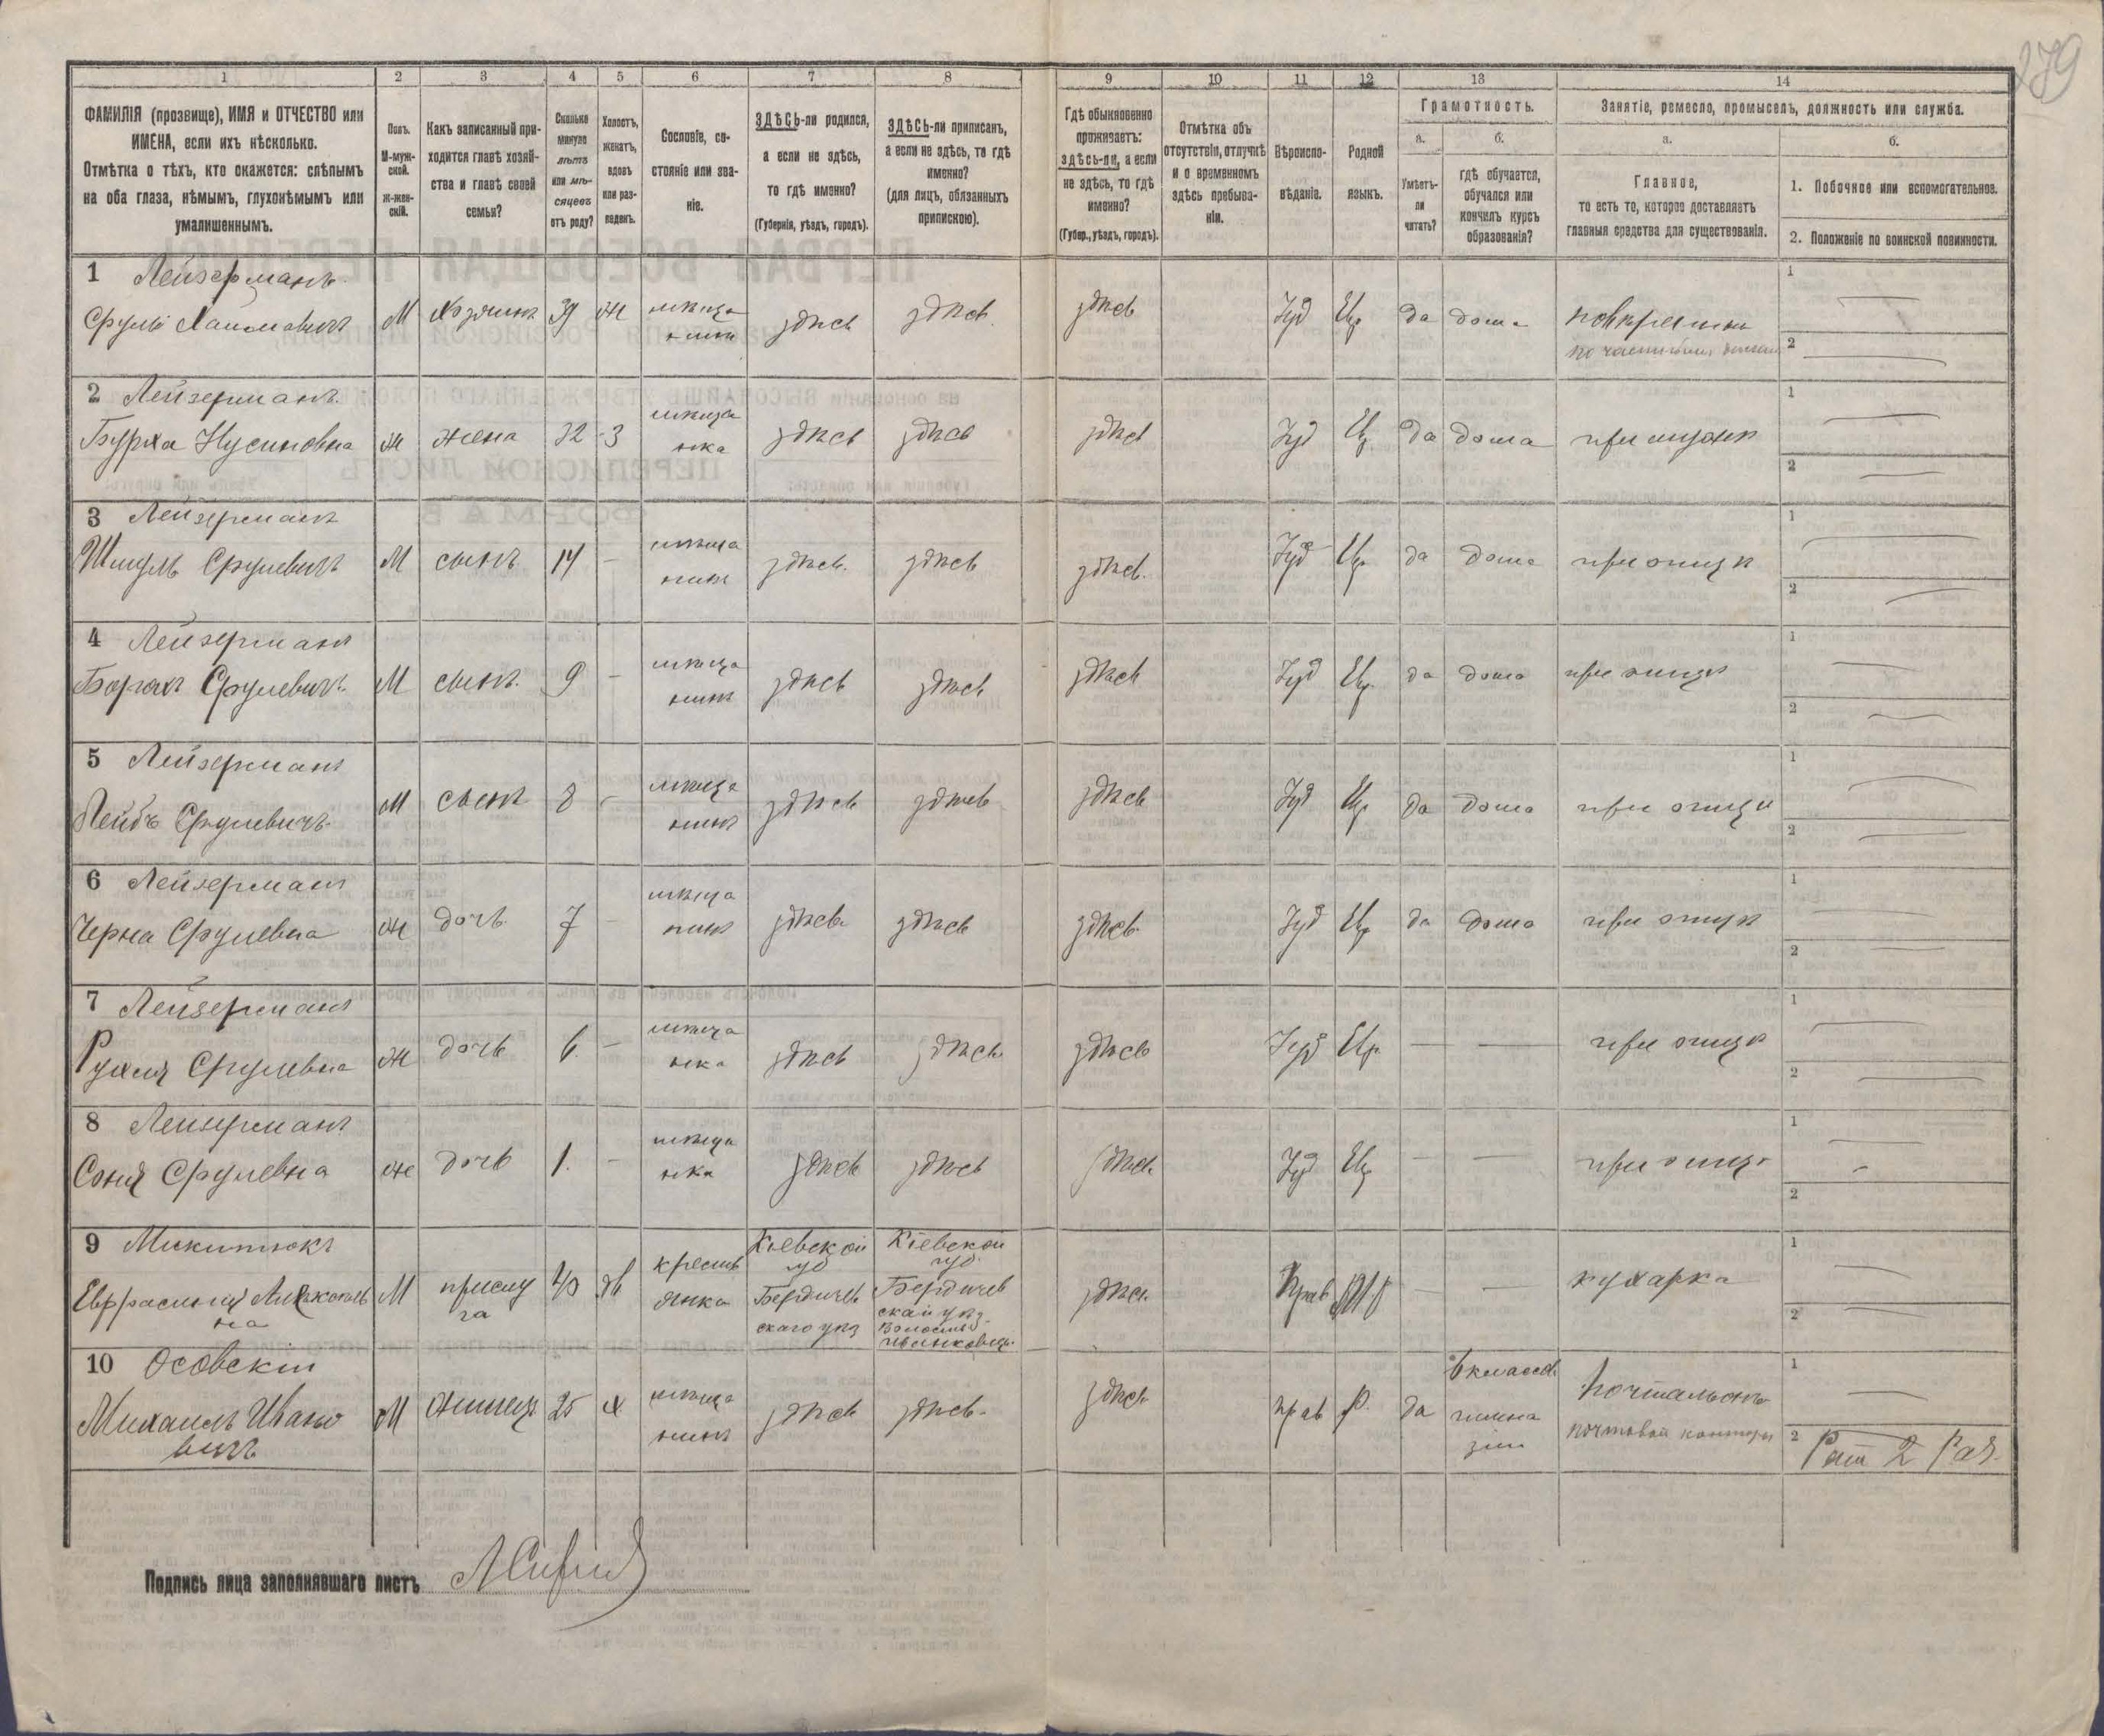 279
1 2 3 4 5 6 7 8 9 10 11 12 13 14
ФАМИЛІЯ (прозвище), ИМЯ и ОТЧЕСТВО или
ИМЕНА, если ихъ нѣсколько.
Отмѣтка о тѣхъ, кто окажется: слѣпымъ
на оба глаза, нѣмымъ, глухонѣмымъ или
умалишеннымъ.
Полъ.
М-муж-
ской.
Ж-жен-
скій.
Какъ записанный при-
ходится главѣ хозяй-
ства и главѣ своей
семьи?
Сколько
минуло
лѣтъ
или мѣ-
сяцевъ
отъ роду?
Холостъ,
женатъ,
вдовъ
или раз-
веденъ.
Сословіе, со-
стояніе или зва-
ніе.
ЗДѢСЬ-ли родился,
а если не здѣсь,
то гдѣ именно?
(Губернія, уѣздъ, городъ).
ЗДѢСЬ-ли приписан,
а если не здѣсь, то гдѣ
именно?
(для лицъ, обязанныхъ
припискою).
Гдѣ обыкновенно
проживаетъ:
здѣсь-ли, а если
не здѣсь, то гдѣ
именно?
(Губер., уѣздъ, городъ).
Отмѣтка объ
отсутствіи, отлучкѣ
и о временномъ
здѣсь пребыва-
ніи.
Вѣроиспо-
вѣданіе.
Родной
языкъ.
Грамотность.
а.
Умѣетъ-
ли
читать?
б.
гдѣ обучается,
обучался или
кончилъ курсъ
образованія?
Занятіе, ремесло, промыселъ, должность или служба.
а.
Главное,
то есть то, которое доставляетъ
главныя средства для существованія.
б.
1. Побочное или вспомогательное.
2. Положеніе по воинской повинности.
1 Лейзерманъ
Сруль Хаимовичъ М Хозяинъ 39 ж мѣща здѣсь здѣсь здѣсь Іуд Евр да дома 1
нинъ
2
2 Лейзерманъ
Бурха Нусиновна ж жена 32 з мѣща здѣсь здѣсь здѣсь Іуд Евр да дома при мужѣ 1
нка
2
3 Лейзерманъ
Шмуль Срулевичъ М сынъ 14 – мѣща здѣсь здѣсь здѣсь Іуд Евр да дома при отцѣ 1
нинъ
2
4 Лейзерманъ
Срулевичъ М сынъ 9 – мѣща здѣсь здѣсь здѣсь Іуд Евр да дома при отцѣ 1
нинъ
2
5 Лейзерманъ
Лейбъ Срулевичъ М сынъ 8 – мѣща здѣсь здѣсь здѣсь Іуд Евр да дома при отцѣ 1
нинъ
2
6 Лейзерманъ
Черна Срулевна ж дочь 7 – мѣща здѣсь здѣсь здѣсь Іуд Евр да дома при отцѣ 1
нинъ
2
7 Лейзерманъ
Рухля Срулевна ж дочь 6 – мѣща здѣсь здѣсь здѣсь Іуд Евр — — при отцѣ 1
нка
2
8 Лейзерманъ
Соня Срулевна ж дочь 1 – мѣща здѣсь здѣсь здѣсь Іуд Евр – – при отцѣ 1
нка
2
9 Микитюкъ
М прислу 40 дв крестья Кіевской Кіевской здѣсь Прав – – кухарка 1
на га янка губ губ
Бердичев Бердичев
скаго уѣз скаго уѣз.
Волости
2
10 Осовскій
Михаилъ Ивано М жилецъ 25 х мѣща здѣсь здѣсь здѣсь прав р. да 6 класс. Почтальонъ 1
вичъ нинъ гимна почтовой конторы
зіи
2 Рат 2 Раз.
Подпись лица заполнявшаго листъ